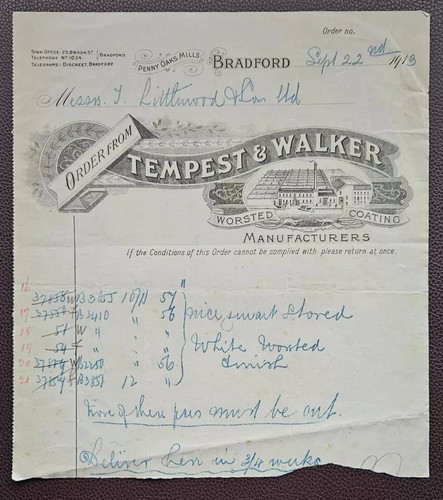 Order no.
TOWN OFFICE: 29, BROOK ST
TELEPHONE Nº 1034.
TELEGRAMS: DISCREET, BRADFORD.
BRADFORD
PENNY OAKS MILLS
BRADFORD Sept 22nd 1913
Messrs. J. Littlewood & Son Ltd
ORDER FROM
TEMPEST & WALKER
WORSTED COATING
MANUFACTURERS
If the Conditions of this Order cannot be complied with please return at once.
16 57
17 B3410 " 56 nice smart Stored
18 51 W " "
19 54 " " White Worsted
20 56 finish
21 B3851 12 "
None of these pieces must be out.
Deliver here in 3/4 weeks